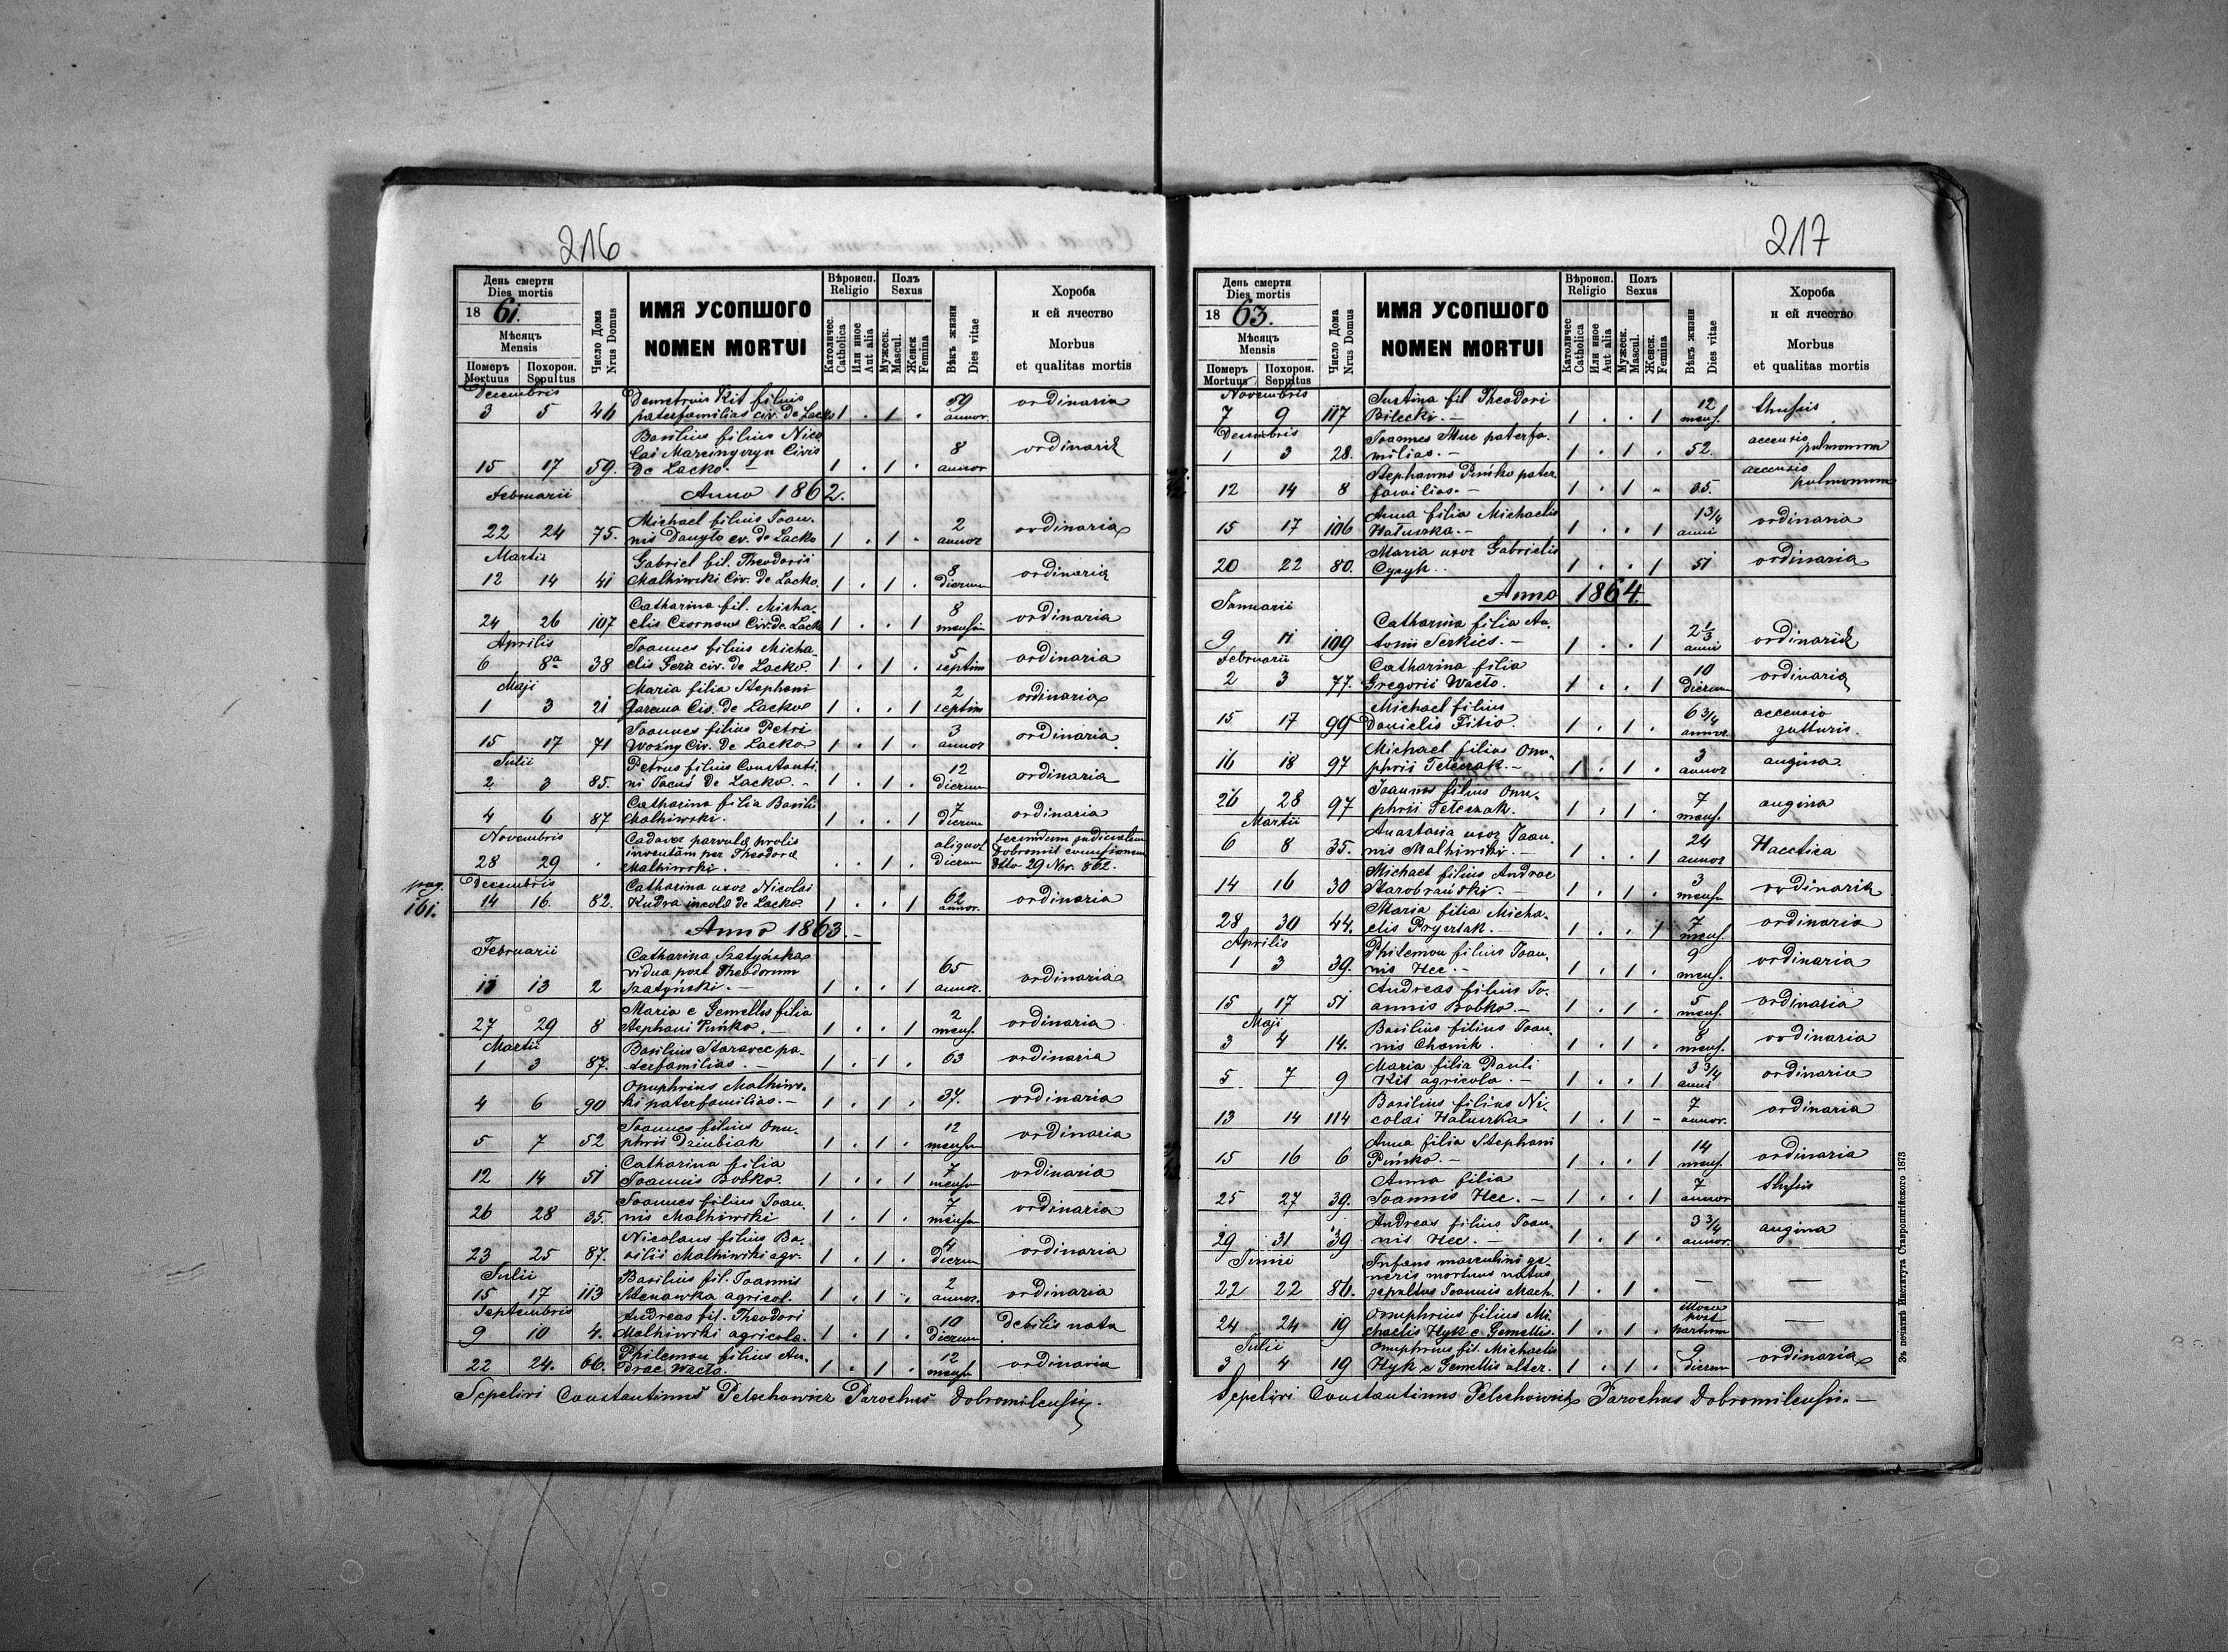 216
День смерти
Dies mortis
18 61.
Мѣсяцъ
Mensis
Померъ Mortuus
Похорон. Sepultus
Число Дома
Nrus Domus
ИМЯ УСОПШОГО
NOMEN MORTUI
Вѣроисп.
Religio
Католичес.
Catholica
Или иное
Aut alia
Полъ
Sexus
Мужеск.
Mascul.
Женск
Femina
Вѣкъ жизни
Dies vitae
Хороба
и ей ячество
Morbus
et qualitas mortis
Decembris
Demetrius Kit filius
3 5 46 paterfamilias civ. de Lacko 1 . 1 . 59 annor. ordinaria
Basilius filius Nico
lai Marcinyszyn Civis
15 17 59. de Lacko. — 1 . 1 . 8 annor ordinaria
Februarii Anno 1862.
Michael filius Joan.
22 24 75. nis Danyło cv. de Lacko 1 . 1 . 2 annor ordinaria
Martii Gabriel fil. Theodorii
12 14 41 Malhiwski Civ. de Lacko. 1 . 1 . 8 dierum ordinaria
Catharina fil. Micha-
24 26 107 elis Czornows Civ. de Lacko 1 . . 1 8 mensiu ordinaria
Aprilis Joannes filius Micha
6 8a 38 elis Pera civ. de Lacko. 1 . 1 . 5 septim ordinaria
Maji Maria filia Stephani
1 3 21 Jarema Civ. de Lacko 1 . . 1 2 septim ordinaria
Joannes filius Petri
15 17 71 Wozny Civ. de Lacko 1 . 1 . 3 annor ordinaria
Julii Petrus filius Constanti
2 3 85. ni Jacuś de Lacko. - 1 . 1 . 12 dierum ordinaria
Catharina filia Basili
4 6 87 Malhiwski. 1 . . 1 7 dierum ordinaria
Novembris Cadaver parvulæ prolis aliquot secundum judicialem
inventam per Theodora Dobromil
28 29 . Malhiwski. — . . 1 . dierum dtto 29 Nov. 862.
pag. 161.
Decembris Catharina uxor Nicolai
14 16. 82. Kudra incola de Lacko. 1 . . 1 62 annor. ordinaria
Anno 1863. —
Februarii Catharina Szatyńska
vidua post Theodorum
11 13 2 Szatyński. — 1 . . 1 65 annor. ordinaria
Maria e Gemellis filia
27 29 8 Stephani Puńko. — 1 . . 1 2 mens. ordinaria
Martii Basilius Staravec pa-
1 3 87. terfamilias. — 1 . 1 . 63 ordinaria
Onuphrius Malhiws-
4 6 90 ki paterfamilias. — 1 . 1 . 37. ordinaria
Joannes filius Onu-
5 7 52 phrii Dziubiak 1 . 1 . 12 mensiu ordinaria
Catharina filia
12 14 51 Joannis Bobko. 1 . . 1 7 mensiu ordinaria
Joannes filius Joan-
26 28 35. nis Malhiwski 1 . 1 . 7 mensiu ordinaria
Nicolaus filius Ba-
23 25 87. silii Malhiwski agr. 1 . 1 . 4 dierum ordinaria
Julii Basilius fil. Joannis
15 17 113 Stenawka agricol. 1 . 1 . 2 annor. ordinaria
Septembris Andreas fil. Theodori
9 10 4. Malhiwski agricola. 1 . 1 . 10 dierum debilis nata
Philemon filius An-
22 24. 66. dreae Wacto. 1 . 1 . 12 mensiu ordinaria
Sepelivi Constantinus Petechowicz Parochus Dobromilensis.
217
День смерти
Dies mortis
18 63.
Мѣсяцъ
Mensis
Померъ Mortuus
Похорон. Sepultus
Число Дома
Nrus Domus
ИМЯ УСОПШОГО
NOMEN MORTUI
Вѣроисп.
Religio
Католичес
Catholica
Или иное
Aut alia
Полъ
Sexus
Мужеск.
Mascul.
Женск.
Femina
Вѣкъ жизни
Dies vitae
Хороба
и ей ячество
Morbus
et qualitas mortis
Novembris Justina fil Theodori
7 9 117 Bilecki. — 1 . . 1 12 mens. thussis
Decembris Joannes Muc paterfa.
1 3 28. milias. — 1 . 1 . 52. accensio pulmonum
Stephanus Puńko pater
12 14 8 familias. — 1 . 1 . 35. accensio pulmonum
Anna filia Michaelis
15 17 106 Hałuszka. — 1 . . 1 1 3/4 anni ordinaria
Maria uxor Gabrielis
20 22 80. Cyzyk. . 1 . . 1 51 ordinaria
Anno 1864.
Januarii
Catharina filia An-
9 11 109 tonii Serkies. — 1 . . 1 2 1/3 anni ordinaria
Februarii Catharina filia
2 3 77. Gregorii Wacto. 1 . . 1 10 dierum ordinaria
Michael filius
15 17 99 Danielis Fitio. 1 . 1 . 6 3/4 annor. accensio gutturis.
Michael filius Onu-
16 18 97 phrii Teleszak. — 1 . 1 . 3 annor angina
Joannes filius Onu-
26 28 97 phrii Teleszak. 1 . 1 . 7 mens. angina
Martii Anastasia uxor Joan-
6 8 35. nis Malhiwski. — 1 . . 1 24 annor Hacctica
Michael filius Andreae
14 16 30 Starobrański. — 1 . 1 . 3 mensu ordinaria
Maria filia Micha-
28 30 44. elis Pryerlak. — 1 . . 1 7 mens. ordinaria
Aprilis Philemon filius Joan-
1 3 39. nis Hec. — 1 . 1 . 9 mens. ordinaria
Andreas filius Jo-
15 17 51 annis Bobko. — 1 . 1 . 5 mens. ordinaria
Maji Basilius filius Joan-
3 4 14. nis Chomik. 1 . 1 . 8 mens. ordinaria
Maria filia Pauli
5 7 9 Kit agricola. — 1 . . 1 3 3/4 anni ordinaria
Basilius filius Ni-
13 14 114 colai Hałuszka 1 . 1 - 7 annor. ordinaria
Anna filia Stephani
15 16 6 Puńko. — 1 . . 1 14 mens. ordinaria
Anna filia
25 27 39. Joannis Hec. — 1 . . 1 7 annor thussis
Andreas filius Joan-
29 31 39 nis Hec. — 1 . 1 . 3 3/4 annor. angina
Junii Infans masculini ge-
neris mortuus natus
22 22 86. sepultus Joannis Mach. 1 . 1 . — —
Onuphrius filius Mi-
24 24 19 chaelis Hyk e Gemellis. 1 . 1 . post partum —
Julii Onuphrius fil. Michaelis
3 4 19 Hyk e Gemellis alter. 1 . 1 . 9 dierum ordinaria
Sepelivi Constantinus Petechowicz Parochus Dobromilensis. —
Зъ печатнѣ Института Ставропигійского 1873